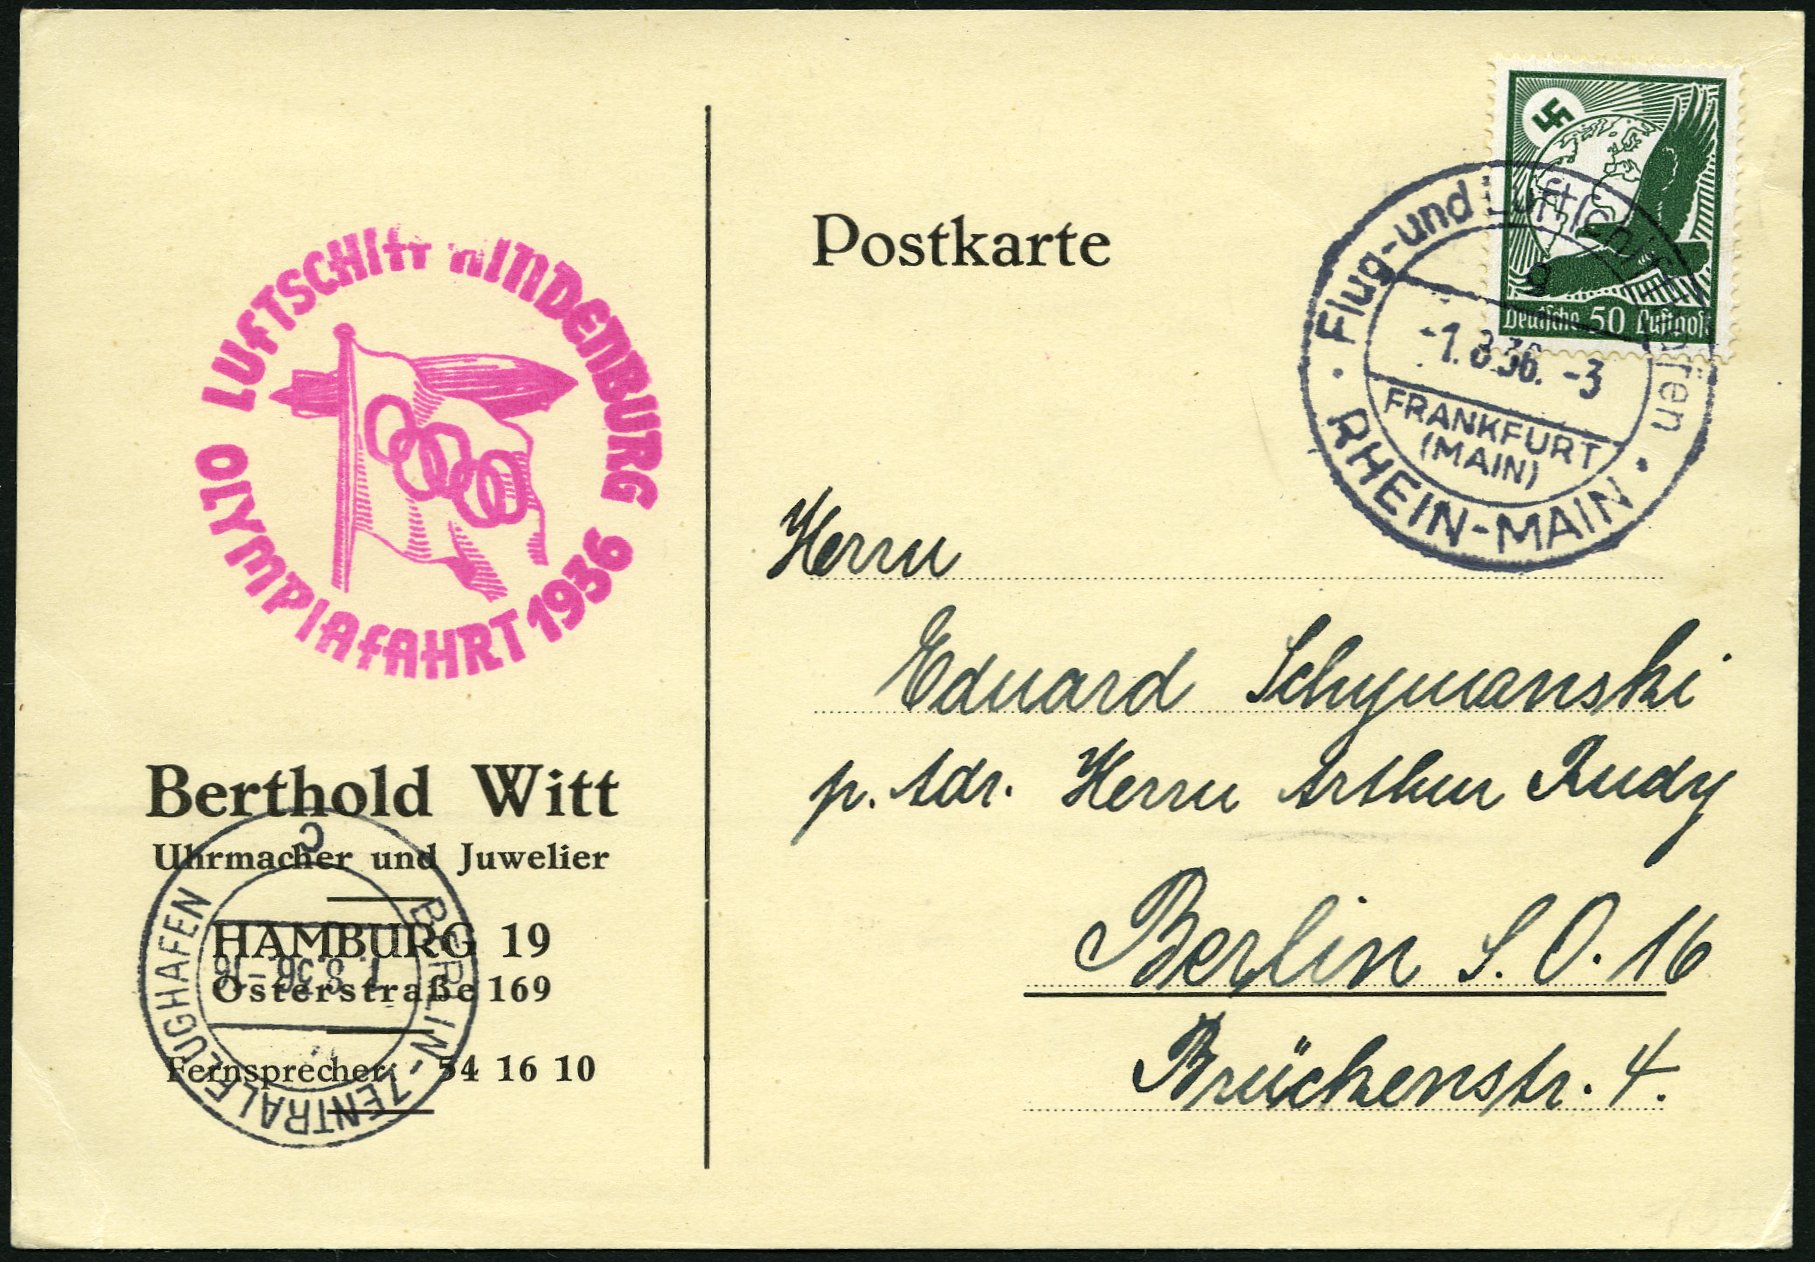 LUFTSCHIFF HINDENBURG
OLYMPIAFAHRT 1936
Postkarte
Deutsche 50 Luftpost
Flug- und Luftschiffhafen
g
-1.8.36.-3
FRANKFURT
(MAIN)
RHEIN-MAIN
Herrn
Eduard Schymanski
p. Adr. Herrn Arthur Rudy
Berlin S.O. 16
Brückenstr. 4.
Berthold Witt
Uhrmacher und Juwelier
HAMBURG 19
Osterstraße 169
Fernsprecher: 54 16 10
BERLIN - ZENTRALFLUGHAFEN
c
1.8.36 -16